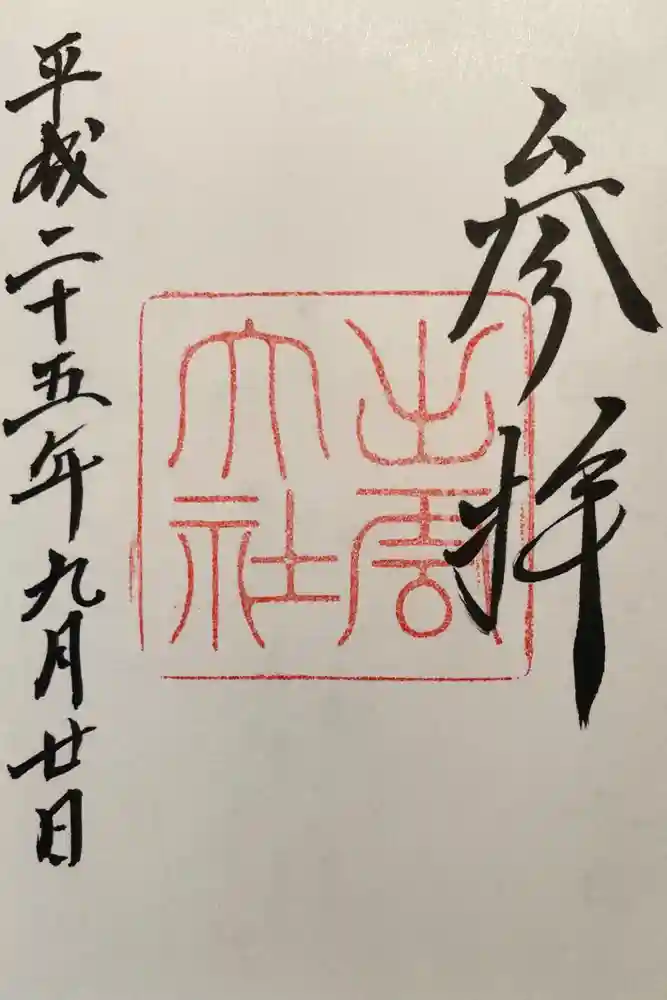 参拝
出雲
大社
平成二十五年九月廿日